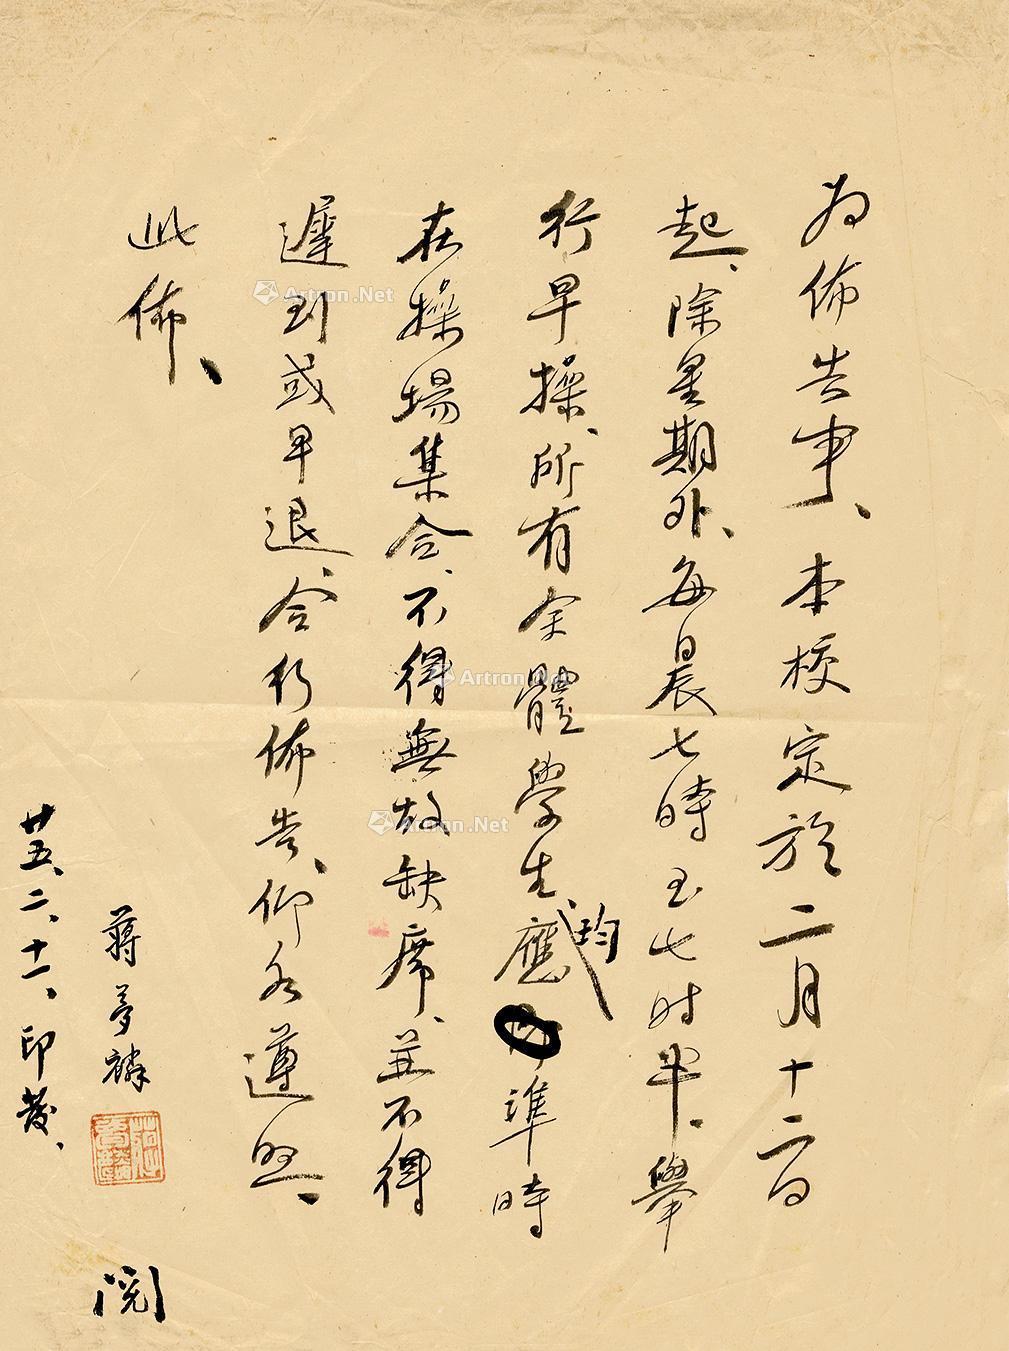 為佈告事、本校定於二月十二日
起、除星期外、每晨七時至七时半、舉
行早操、所有全體學生均應準時
在操場集合、不得無故缺席、並不得
遲到或早退、合行佈告、仰各遵照、
此佈、
蔣夢麟
閱
廿五、二、十一、印發、
Artron.Net
Artron.Net
Artron.Net